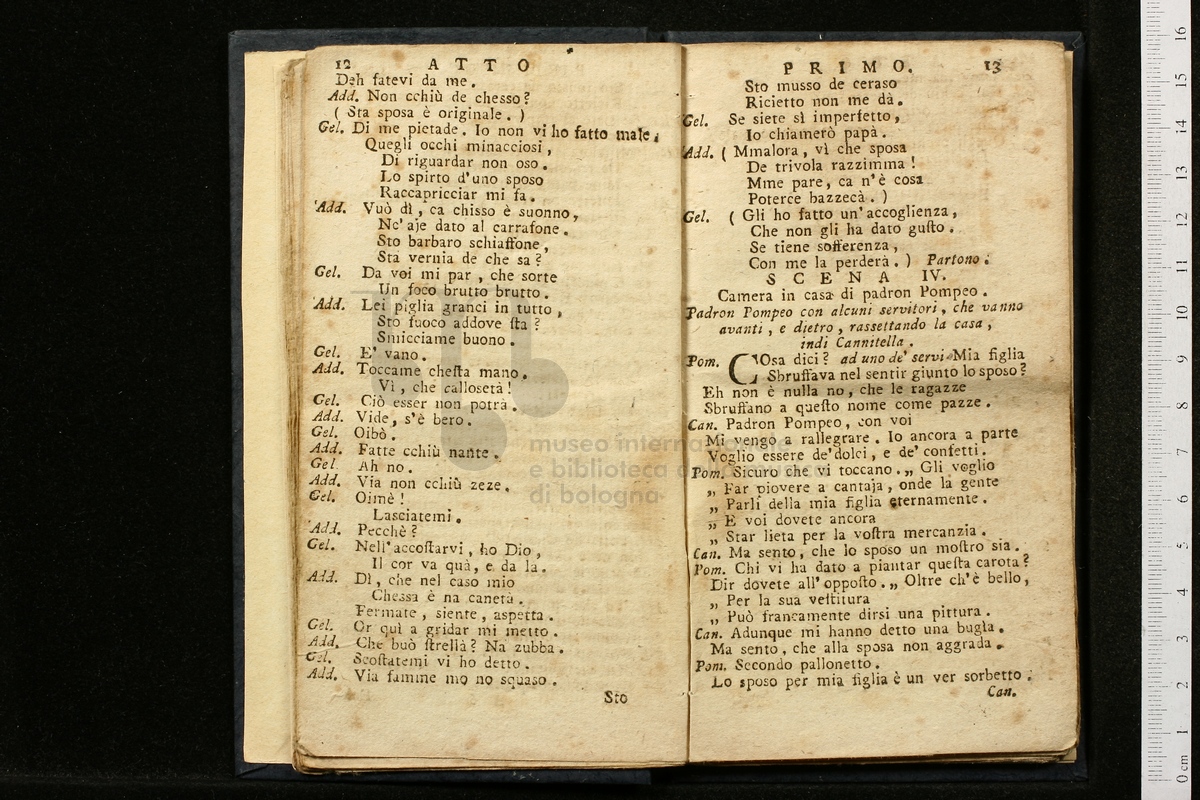 12 ATTO
Deh fatevi da me.
Add. Non cchiù de chesso?
( Sta sposa è originale. )
Gel. Di me pietade. Io non vi ho fatto male,
Quegli occhi minacciosi,
Di riguardar non oso.
Lo spirto d'uno sposo
Raccapricciar mi fa.
Add. Vuò dì, ca chisso è suonno,
Nc'aje dato al carrafone.
Sto barbaro schiaffone,
Sta vernia de che sa?
Gel. Da voi mi par, che sorte
Un foco brutto brutto.
Add. Lei piglia granci in tutto,
Sto fuoco addove sta?
Smicciame buono.
Gel. E' vano.
Add. Toccame chesta mano,
Vì, che callosetà!
Gel. Ciò esser non potrà.
Add. Vide, s'è bero.
Gel. Oibò.
Add. Fatte cchiù nante.
Gel. Ah no.
Add. Via non cchiù zeze.
Gel. Oimè!
Lasciatemi.
Add. Pecchè?
Gel. Nell'accostarvi, ho Dio,
Il cor va quà, e da la.
Add. Dì, che nel caso mio
Chessa è na canetà.
Fermate, siente, aspetta.
Gel. Or quì a gridar mi metto.
Add. Che buò strellà? Na zubba.
Gel. Scostatemi vi ho detto.
Add. Via famme mo no squaso.
Sto
PRIMO. 13
Sto musso de ceraso
Ricietto non me dà.
Gel. Se siete sì imperfetto,
Io chiamerò papà.
Add. ( Mmalora, vì che sposa
De trivola razzimma!
Mme pare, ca n'è cosa
Poterce bazzecà. )
Gel. ( Gli ho fatto un'accoglienza,
Che non gli ha dato gusto.
Se tiene sofferenza,
Con me la perderà. ) Partono.
SCENA IV.
Camera in casa di padron Pompeo.
Padron Pompeo con alcuni servitori, che vanno
avanti, e dietro, rassettando la casa,
indi Cannitella.
Pom. COsa dici? ad uno de' servi Mia figlia
Sbruffava nel sentir giunto lo sposo?
Eh non è nulla no, che le ragazze
Sbruffano a questo nome come pazze.
Can. Padron Pompeo, con voi
Mi vengo a rallegrare. Io ancora a parte
Voglio essere de'dolci, e de' confetti.
Pom. Sicuro che vi toccano. „ Gli voglio
„ Far piovere a cantaja, onde la gente
„ Parli della mia figlia eternamente.
„ E voi dovete ancora
„ Star lieta per la vostra mercanzia.
Can. Ma sento, che lo sposo un mostro sia.
Pom. Chi vi ha dato a piantar questa carota?
Dir dovete all'opposto. „ Oltre ch'è bello,
„ Per la sua vestitura
„ Può francamente dirsi una pittura.
Can. Adunque mi hanno detto una bugìa.
Ma sento, che alla sposa non aggrada.
Pom. Secondo pallonetto.
Lo sposo per mia figlia è un ver sorbetto.
Can.
museo internazionale
e biblioteca della musica
di bologna
0 cm 1 2 3 4 5 6 7 8 9 10 11 12 13 14 15 16